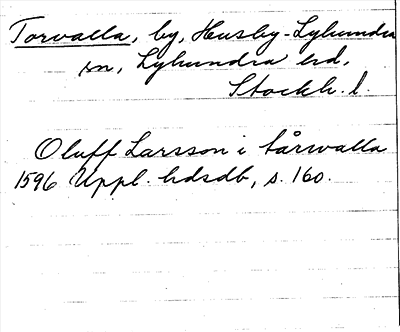 Torvalla, by, Husby-Lyhundra
sn, Lyhundra hd,
Stockh. l.
Oluff Larsson i tårwalla
1596 Uppl. hdsdb, s. 160.